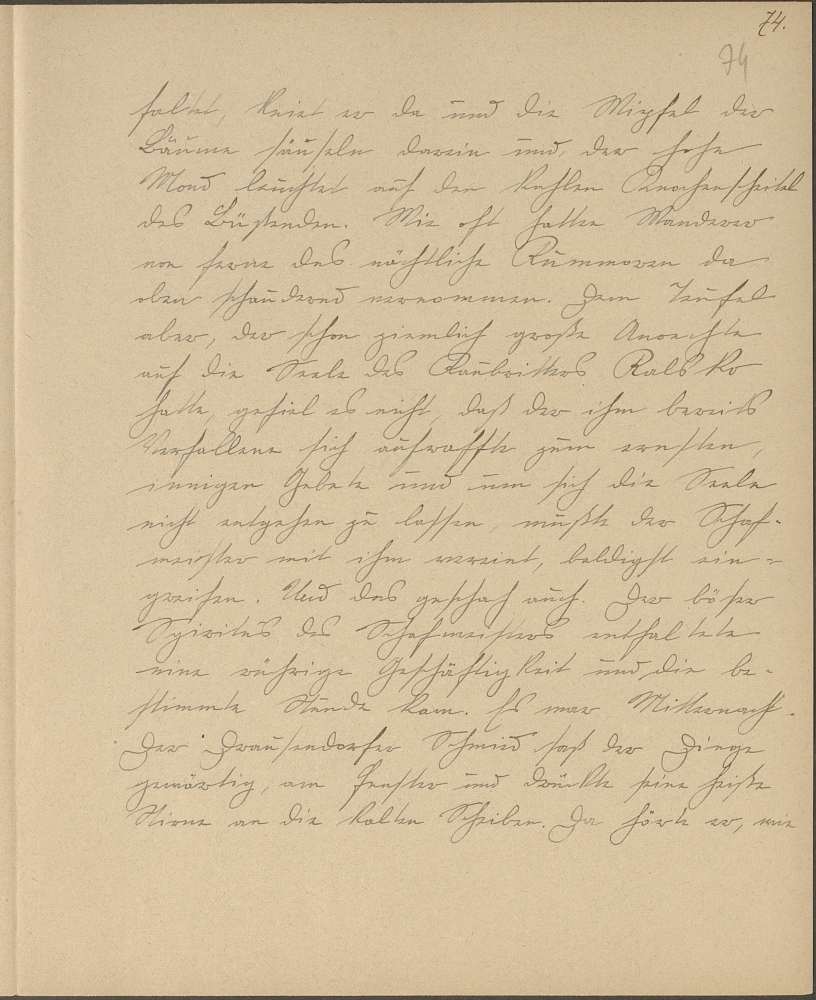 74.
74
faltet, kniet er da und die Wipfel der
Bäume säuseln darein und, der hohe
Mond leuchtet auf den kahlen Knochenscheitel
des Büßenden. Wie oft hatten Wanderer
von ferne das nächtliche Rummoren da
oben schaudernd vernommen. Dem Teufel
aber, der schon ziemlich große Anrechte
auf die Seele des Raubritters Ralsko
hatte, gefiel es nicht, daß der ihm bereits
Verfallene sich aufraffte zum ernsten,
innigen Gebete und um sich die Seele
nicht entgehen zu lassen, mußte der Schaf-
meister mit ihm vereint, baldigst ein-
greifen. Und das geschah auch. Der böse
Spiritus des Schafmeisters entfaltete
eine rührige Geschäftigkeit und die be-
stimmte Stunde kam. Es war Mitternacht.
Der Brausendorfer Schmied saß der Dinge
gewärtig, am Fenster und drückte seine heiße
Stirne an die kalten Scheiben. Da hörte er, wie